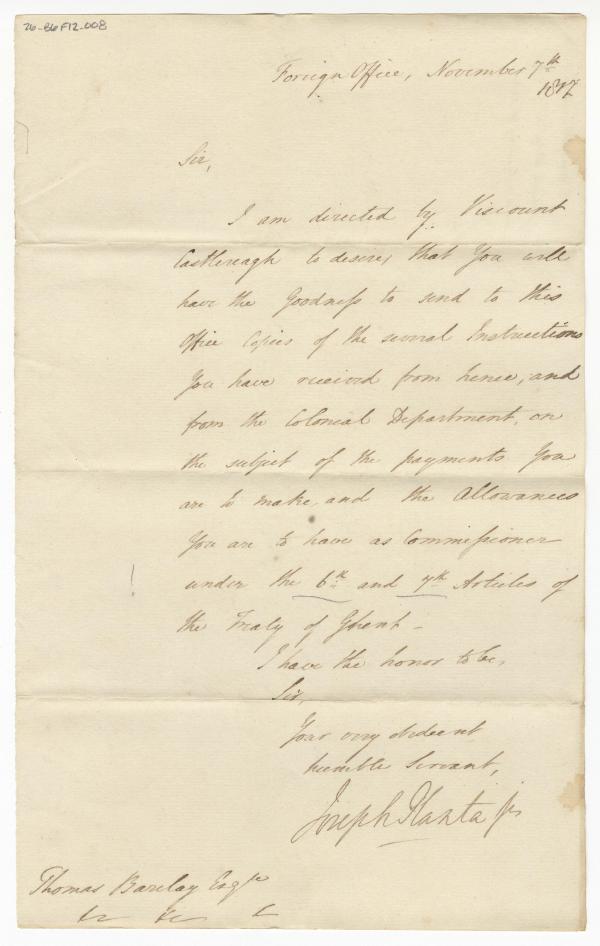 76-B6F12-008
Foreign Office, November 7th
1817
Sir,
I am directed by Viscount
Castlereagh to desire, that You will
have the Goodness to send to this
Office Copies of the several Instructions
You have received from hence, and
from the Colonial Department, on
the subject of the payments You
are to make, and the Allowances
You are to have as Commissioner
under the 6th and 7th Articles of
the Treaty of Ghent –
I have the honor to be,
Sir,
Your very obedient
humble Servant,
Joseph Planta Jr
Thomas Barclay Esqre
&c &c &c